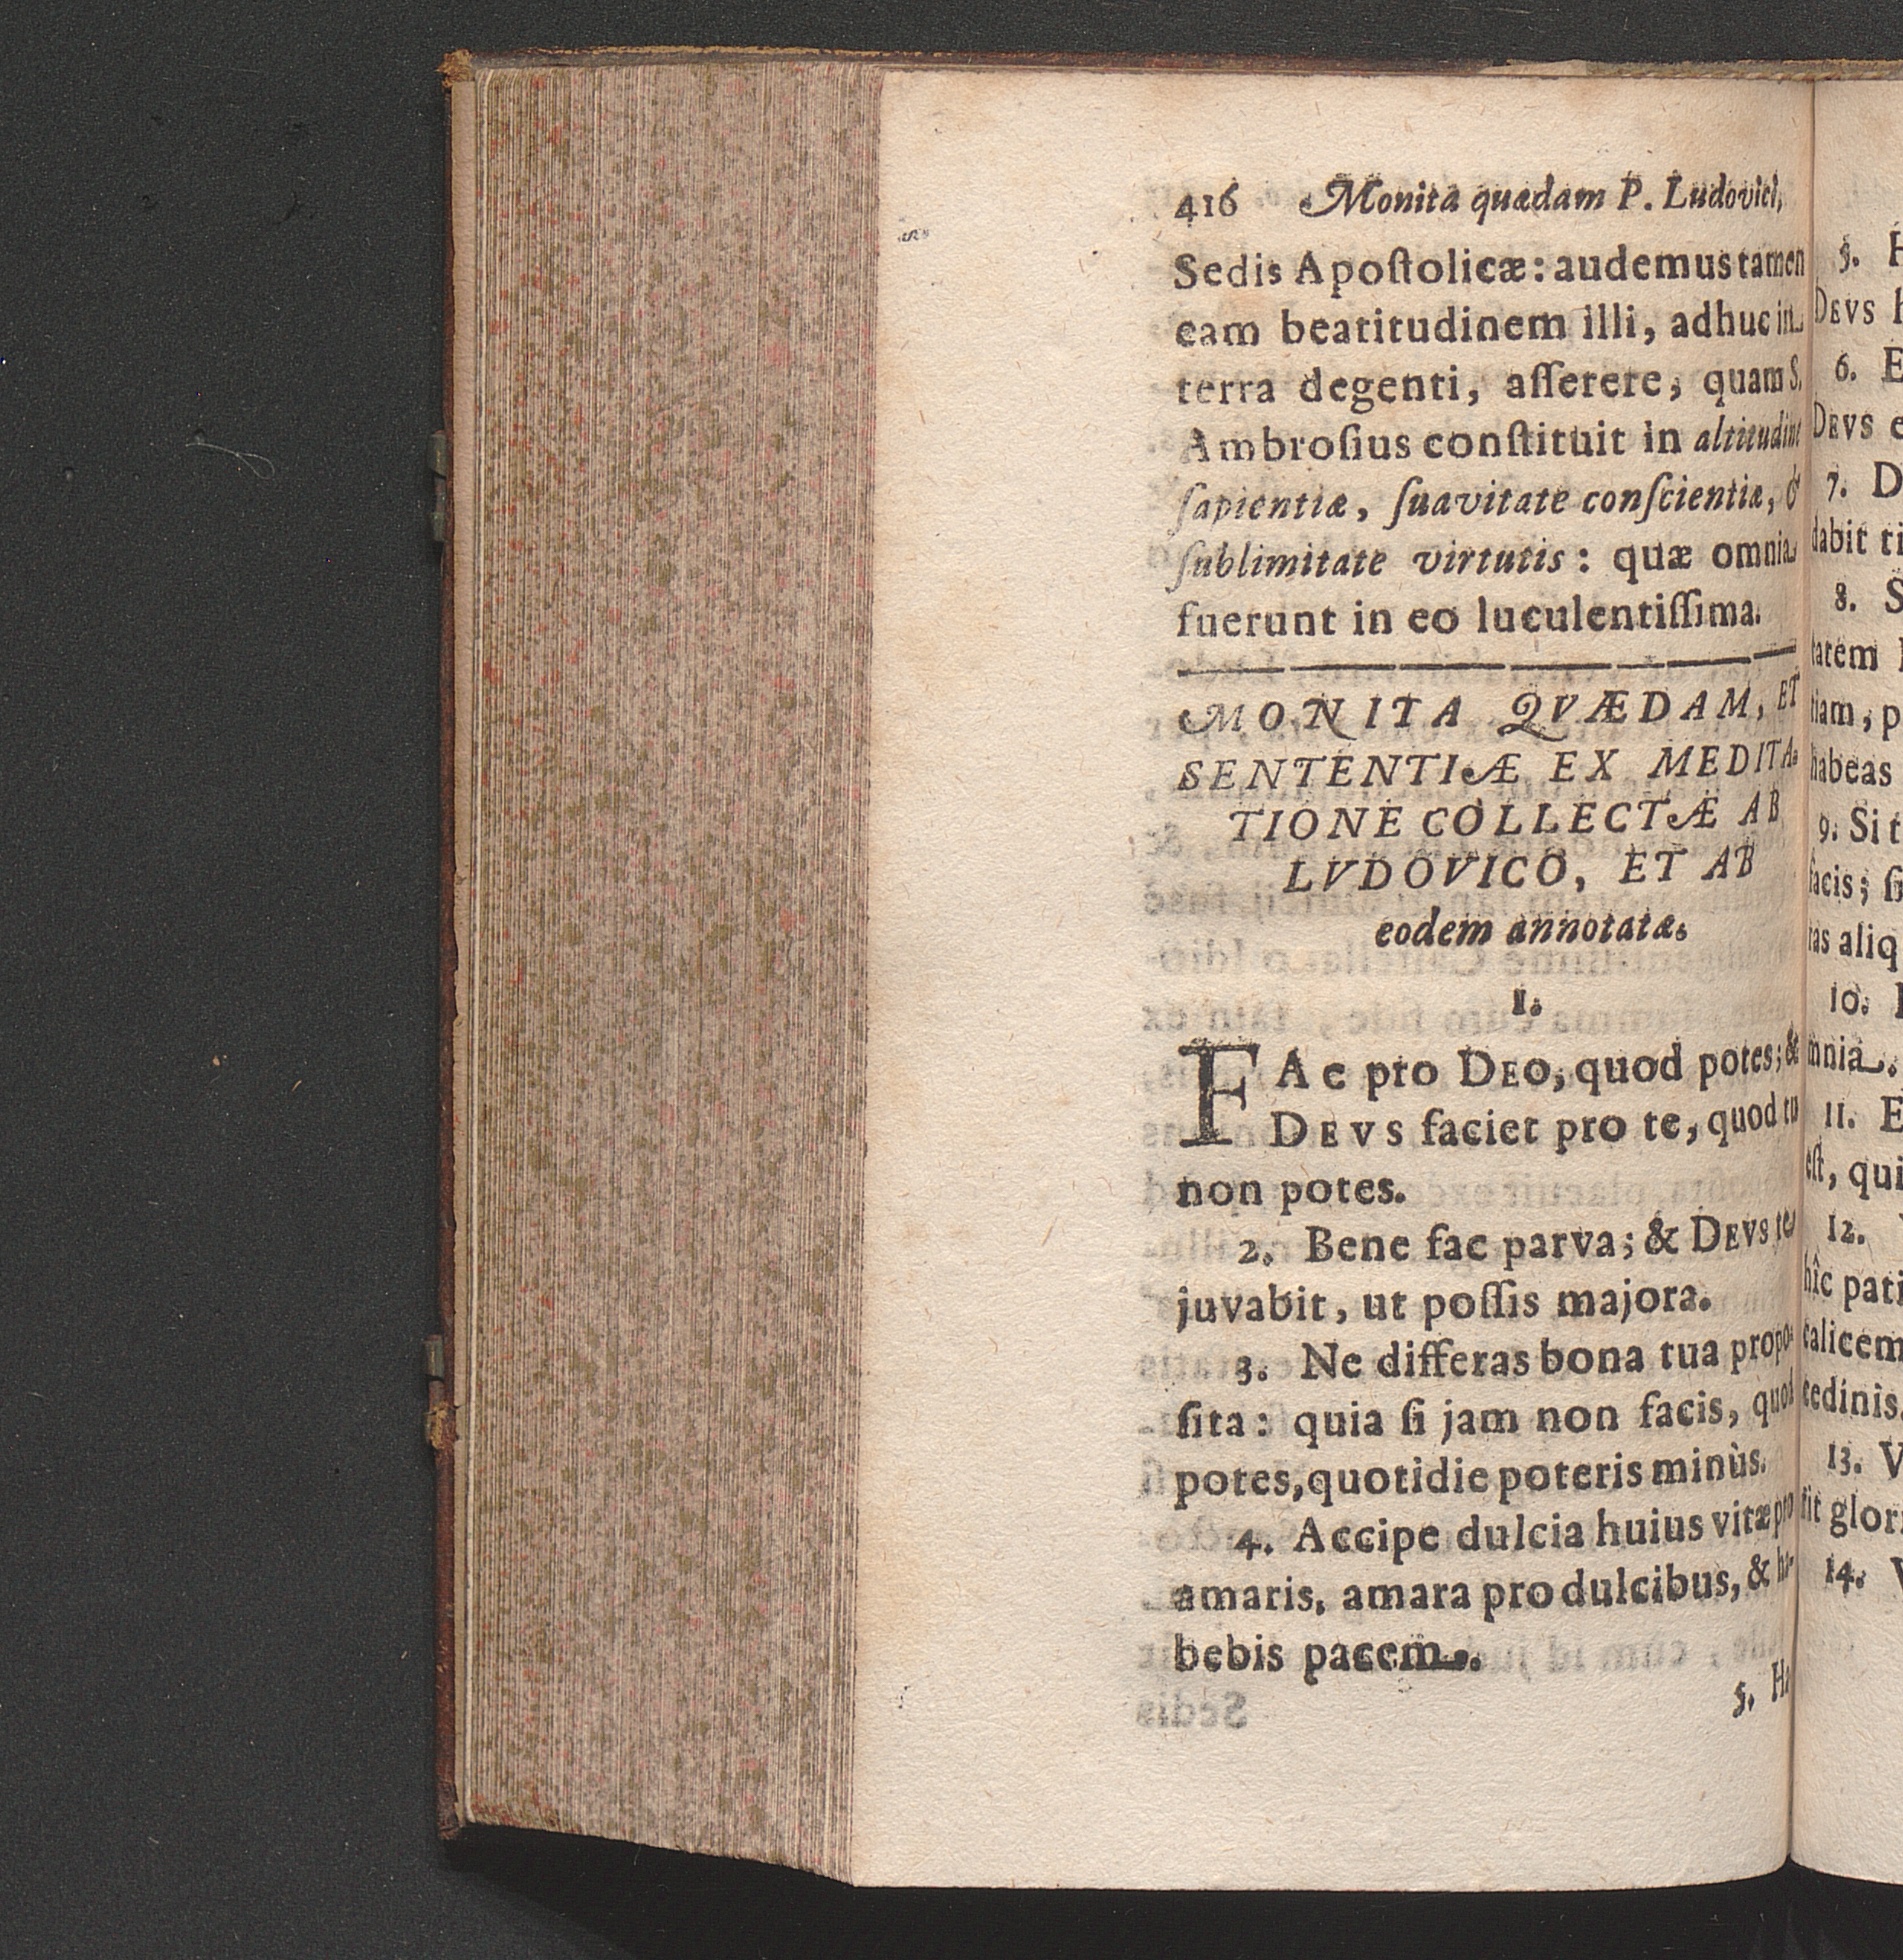 416 Monita quædam P. Ludovici,
Sedis Apoſtolicæ: audemus tamen
eam beatitudinem illi, adhuc in
terra degenti, aſſerere, quam S.
Ambroſius conſtituit in altitudine
ſapientiæ, ſuavitate conſcientiæ, &
ſublimitate virtutis: quæ omnia
fuerunt in eo luculentiſſima.
MONITA QVÆDAM, ET
SENTENTIÆ EX MEDITA-
TIONE COLLECTÆ AB
LVDOVICO, ET AB
eodem annotatæ.
1.
FAc pro DEO, quod potes; &
DEVS faciet pro te, quod tu
non potes.
2. Bene fac parva; & DEVS te
juvabit, ut poſſis majora.
3. Ne differas bona tua propo-
ſita: quia ſi jam non facis, quod
potes, quotidie poteris minùs.
4. Accipe dulcia huius vitæ pro
amaris, amara pro dulcibus, & ha-
bebis pacem.
5. Ha
5. H
DEVS
6. E
DEVS e
7. D
dabit ti
8. S
tatem
tiam, p
habeas
9. Si t
facis; ſi
ras aliq
10.
mnia.
11. E
eſt, qui
12.
hîc pati
calicem
cedinis,
13. V
ſit glori
14. V